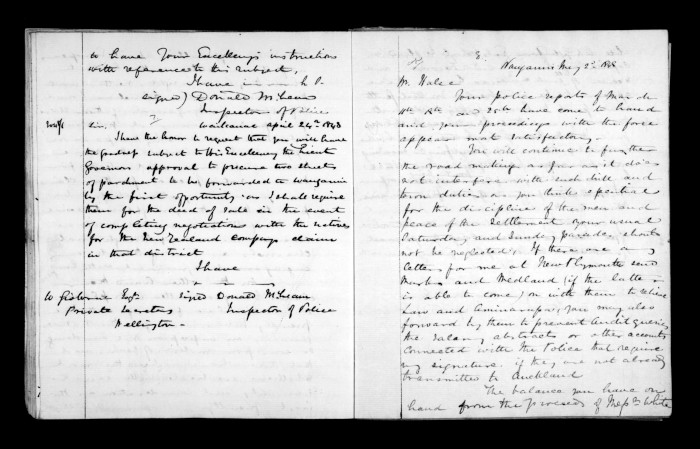 to have Your Excellency's instructions
with reference to this subject,
I have
signed) Donald McLean
Inspector of Police
Wanganui April 24th 1848
Sir,
I have the honor to request that you will have
the goodness to subject to His Excellency the Lieut
Governors approval to procure two sheets
of parchment to be forwarded to Wanganui
by the first opportunity as I shall require
them for the deed of sale in the event
of completing negotiation with the natives
for the New Zealand Companys claim
in that district
I have
to Gisborne Esqr signed Donald McLean
Private Secretary Inspector of Police
Wellington -
Wanganui May 2d 1848
Mr. Halse
Your police reports of March
11th 18th and 25th have come to hand
and your proceedings with the force
appear most satisfactory.
You will continue to further
the road making as far as it does
not interfere with such drill and
town duties as you think essential
for the discipline of the men and
peace of the settlement your usual
Saturday and Sunday parade should
not be neglected; If there are any
letters for me at New Plymouth send
Marks and Medland (if the latter
is able to come) on with them to relieve
Law and you may also
forward by them to prevent audit queries
the salary abstracts or other accounts
connected with the Police that require
my signature if they are not already
transmitted to Auckland
The balance you have on
hand from the proceeds of White